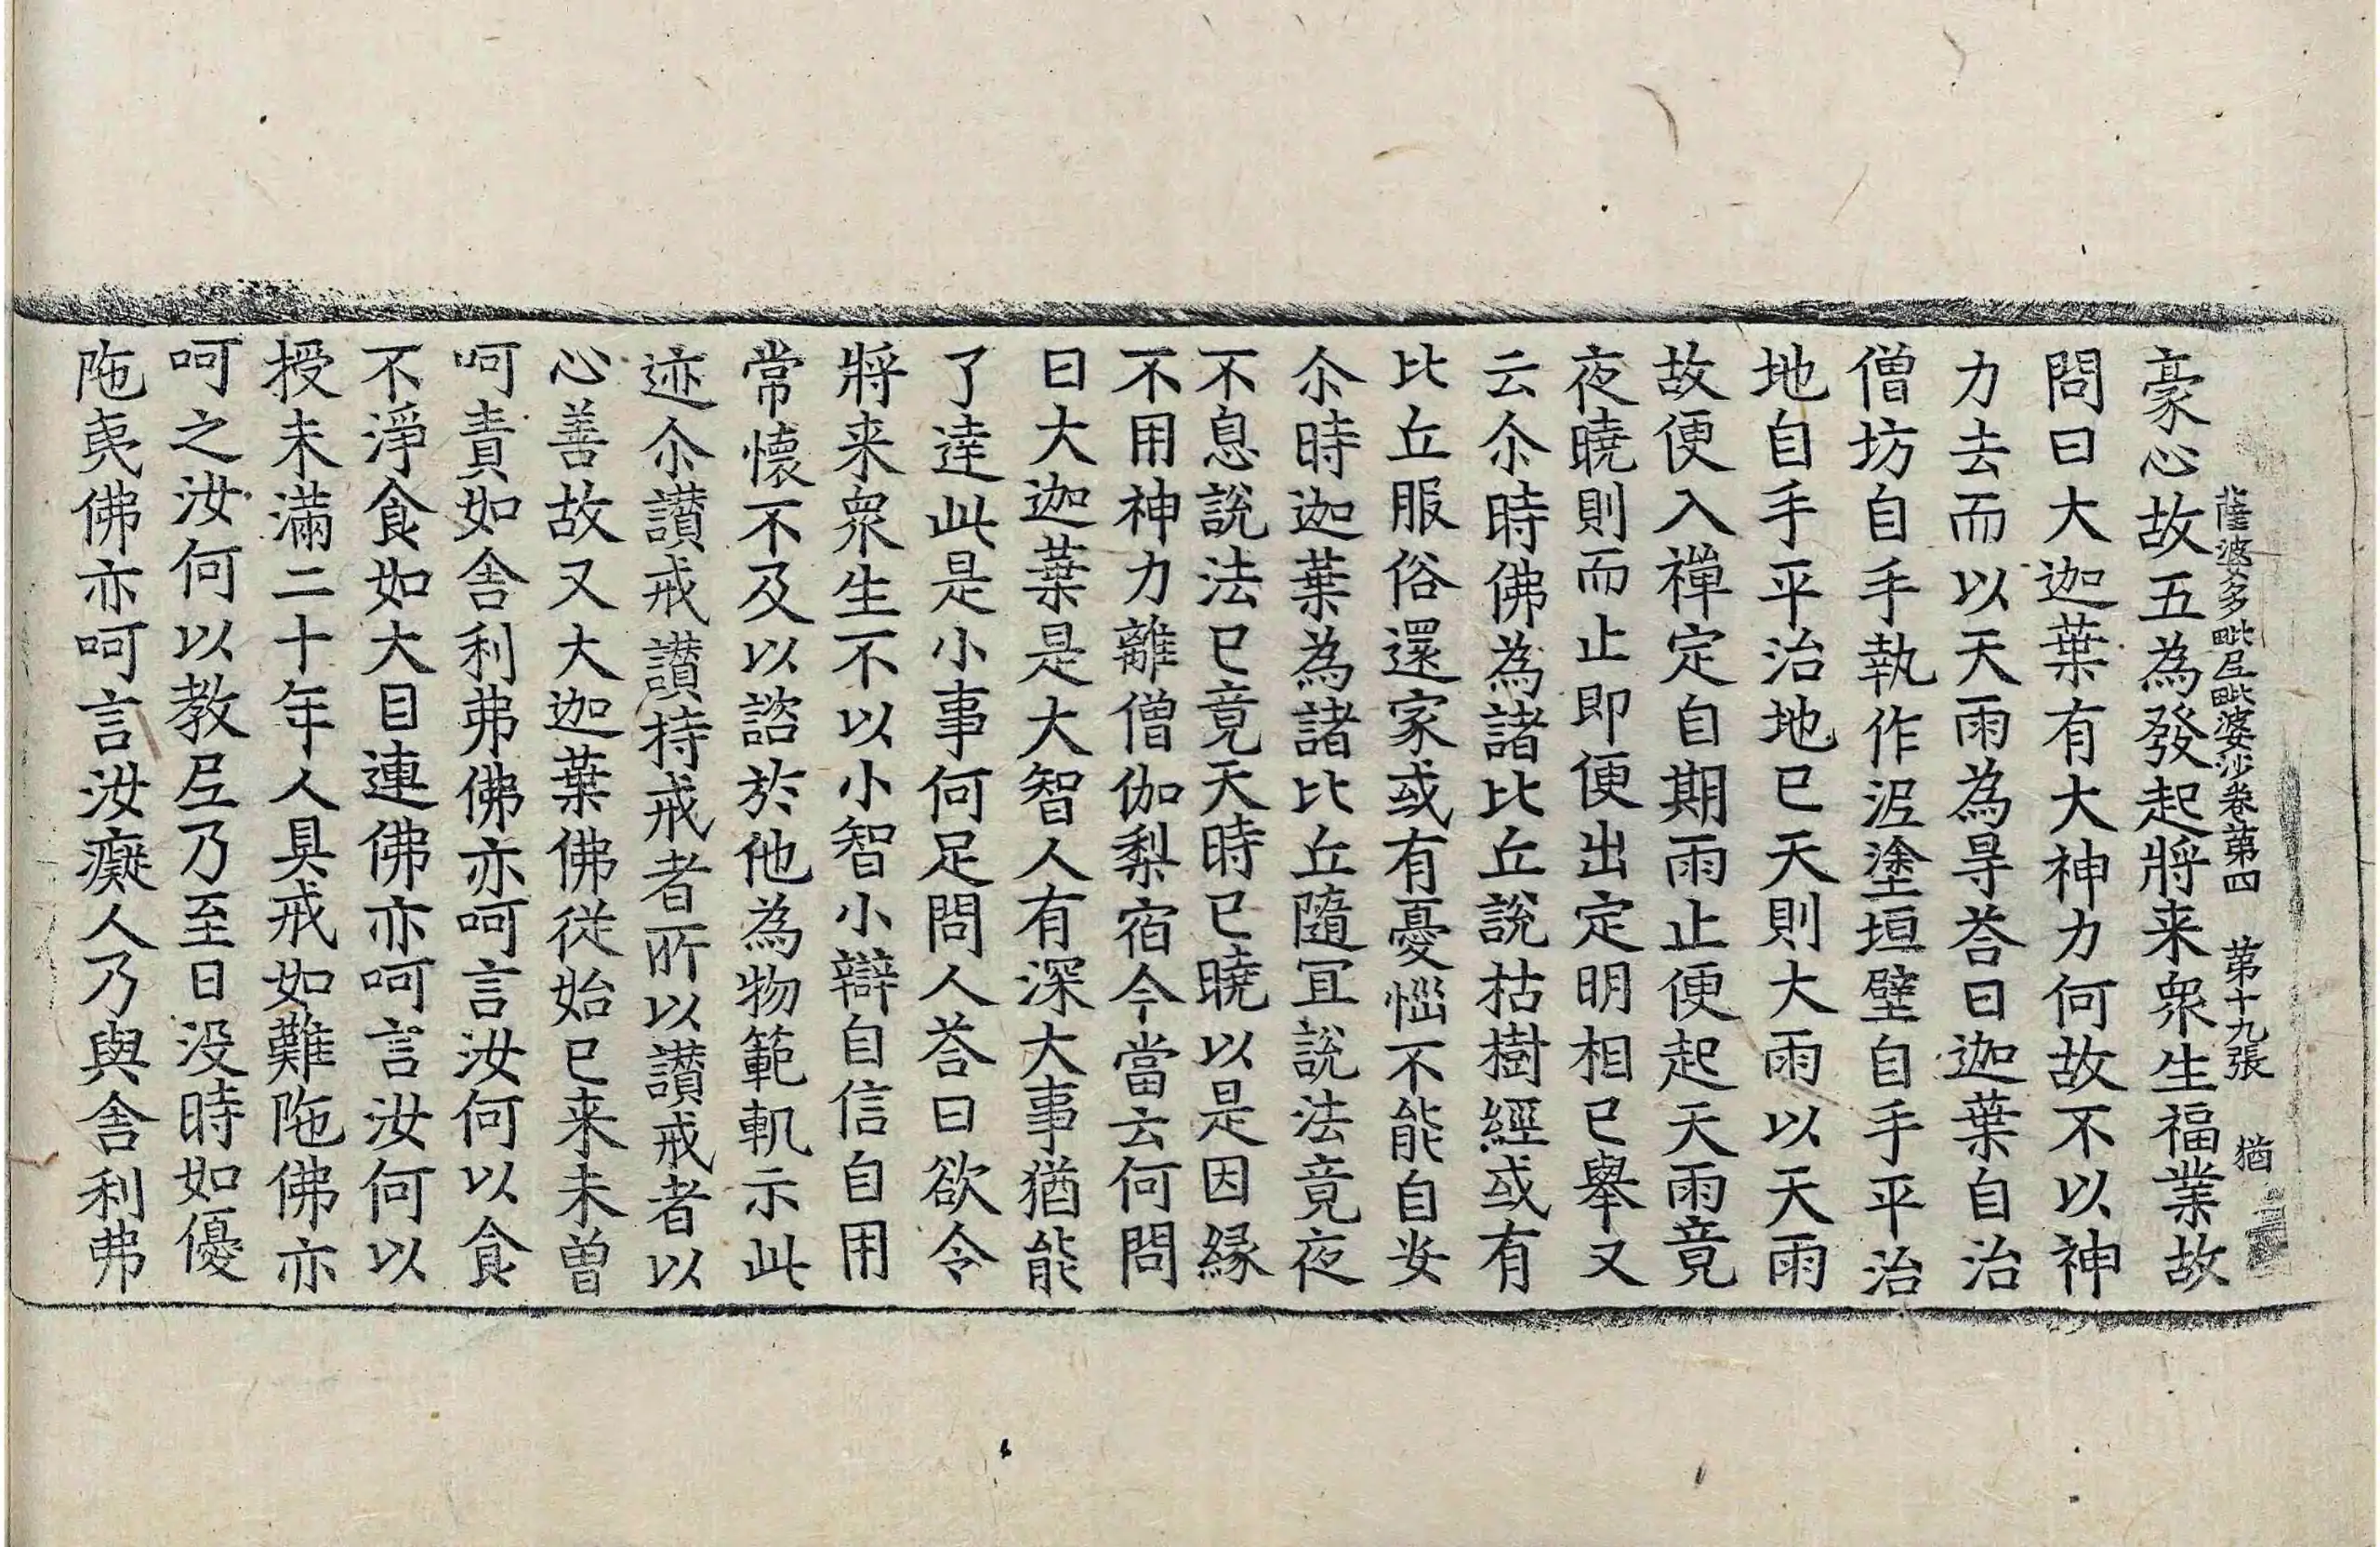 薩婆多毗𡰱毗婆沙卷第四　第十九張　猶
豪心故五為發起將来衆生福業故
問曰大迦葉有大神力何故不以神
力去而以天雨為㝵荅曰迦葉自治
僧坊自手執作泥塗垣壁自手平治
地自手平治地已天則大雨以天雨
故便入禪定自期雨止便起天雨竟
夜曉則而止即便出定明相已舉又
云尒時佛為諸比丘說枯樹經或有
比丘服俗還家或有憂惱不能自安
尒時迦葉為諸比丘隨冝說法竟夜
不息說法已竟天時已曉以是因緣
不用神力離僧伽梨宿今當云何問
曰大迦葉是大智人有深大事猶能
了達此是小事何足問人荅曰欲令
將来衆生不以小智小辯自信自用
常懷不及以諮於他為物範軌示此
迹尒讃戒讃持戒者所以讃戒者以
心善故又大迦葉佛從始已来未曽
呵責如舎利弗佛亦呵言汝何以食
不淨食如大目連佛亦呵言汝何以
授未滿二十年人具戒如難陁佛亦
呵之汝何以教𡰱乃至日没時如優
陁夷佛亦呵言汝癡人乃與舎利弗